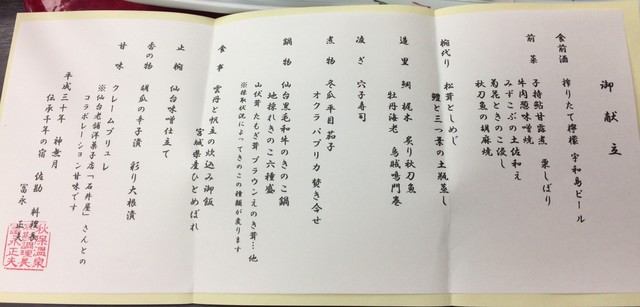 御献立
食前酒 搾りたて檸檬 宇和島ビール
前菜 子持鮎甘露煮 栗しぼり
牛肉葱味噌焼
みずこぶの土佐和え
菊花ときのこ浸し
秋刀魚の胡麻焼
椀代り 松茸としめじ
鱧と三つ葉の土瓶蒸し
造里 鯛 梶木 炙り秋刀魚
牡丹海老 烏賊鳴門巻
凌ぎ 穴子寿司
煮物 冬瓜 平目 茄子
オクラ パプリカ 焚き合せ
鍋物 仙台黒毛和牛のきのこ鍋
地採れきのこ六種盛
山伏茸 たもぎ茸 ブラウンえのき茸…他
※採取状況によってきのこの種類が変ります
食事 雲丹と帆立の炊込み御飯
宮城県産ひとめぼれ
止椀 仙台味噌仕立て
香の物 胡瓜の辛子漬 彩り大根漬
甘味 クレームブリュレ
※仙台老舗洋菓子店「石井屋」さんとの
コラボレーション甘味です
平成三十年 神無月
伝承千年の宿 佐勘 料理長
冨永 正夫
秋保温泉